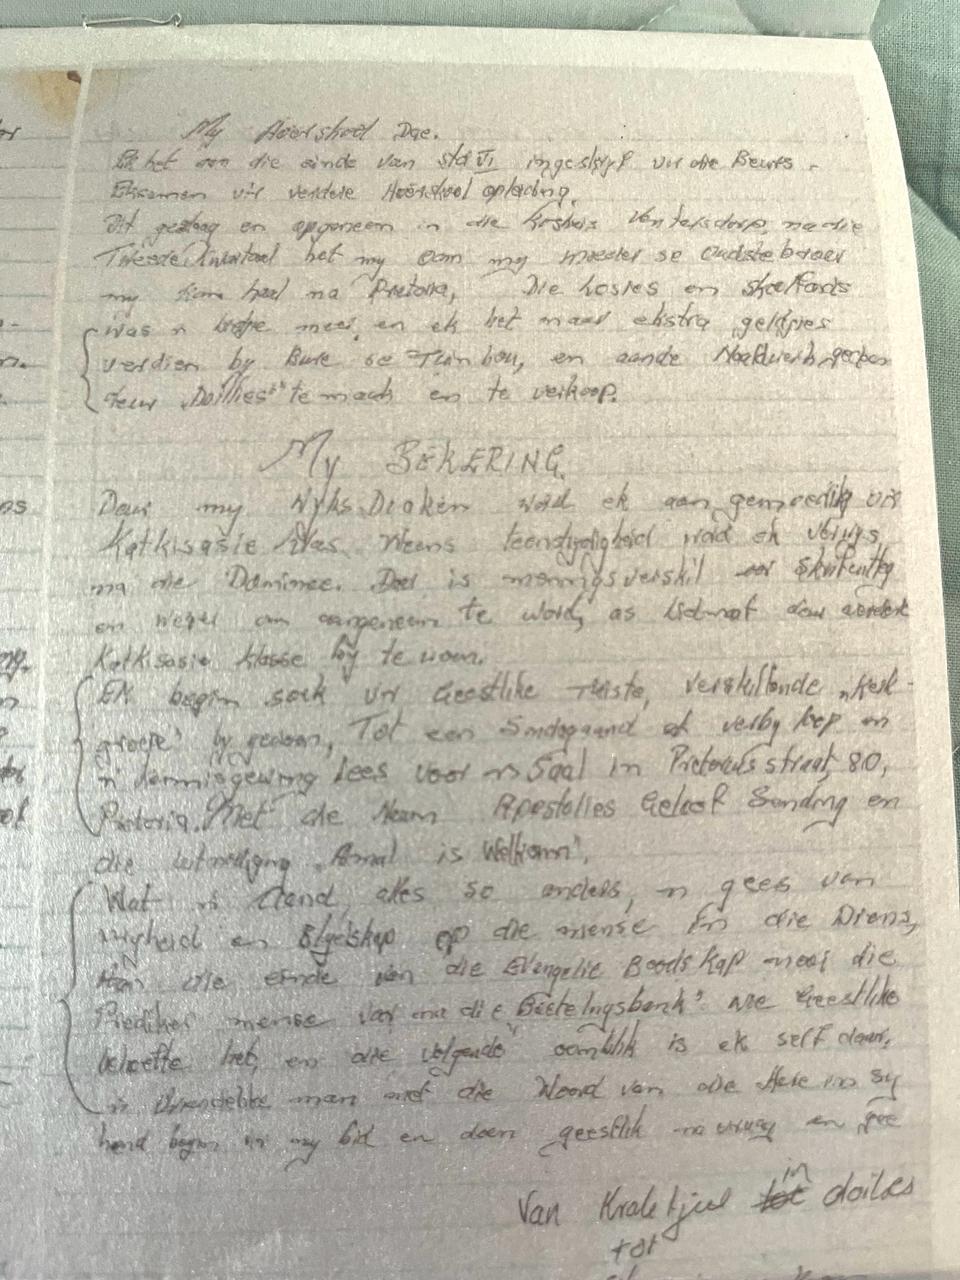 My Hoërskool Dae.
Ek het aan die einde van std VI ingeskryf vir die Beurs-
Eksamen vir verdere Hoërskool opleiding.
Dit geslaag en opgeneem in die Koshuis Ventersdorp, na die
Tweede Kwartaal het my oom my moeder se oudste broer
my kom haal na Pretoria, Die losies en skoolfonds
was 'n bietjie meer, en ek het maar ekstra geldjies
verdien by Bure se Tuin bou, en aande Naaldwerk
deur „Doilies" te maak en te verkoop.
My BEKERING.
Deur my Ryks Diaken word ek aan gemoedig vir
Katkisasie klas. Weens teenstrydigheid word ek verwys
na die Dominee. Daar is meningsverskil oor Skriftuurlik
en weier om aangeneem te word, as lidmaat deur verdere
Katkisasie klasse by te woon.
EK begin soek vir Geestlike Ruste, verskillende „Kerk-
groepe" by gewoon, Tot een Sondagaand ek verby loop en
'n kennisgewing lees voor 'n Saal in Pretorius straat, 80,
Pretoria. Met die Naam Apostolies Geloof Sending en
die uitnodiging „Almal is Welkom".
Wat 'n Aand, alles so anders, 'n gees van
nigheid en Blydskap op die mense in die Diens,
Aan die einde van die Evangelie Boodskap nooi die
Prediker mense vorentoe na die „Boetelingsbank" wie Geestlike
behoefte het, en die volgende oomblik is ek self daar,
'n Vriendelike man met die Woord van die Here in sy
hand begin vir my bid en doen geestlik navraag en gee
Van Kraletjies in doilies
tot